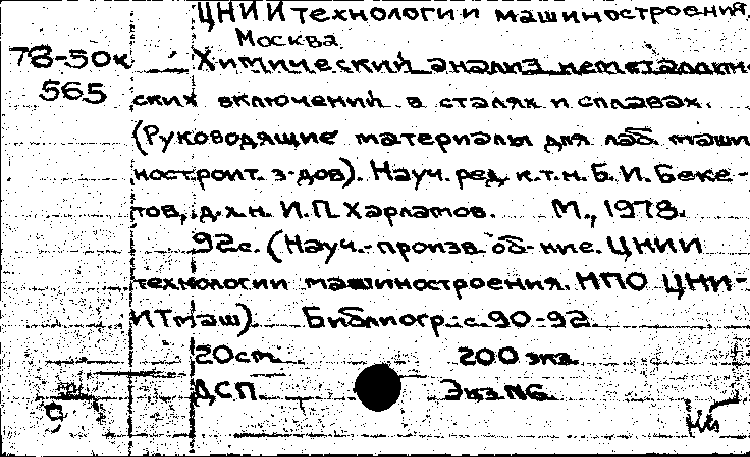 ЦНИИ технологии машиностроения.
Москва.
78-50к Химический анализ неметалличе-
565 ских включений в сталях и сплавах.
(Руководящие материалы для лаб. маши-
ностроит. з-дов). Науч. ред. к.т.н. Б.И. Беке-
тов, д.х.н. И.П. Харламов. М., 1978.
92с. (Науч.-произв. об-ние. ЦНИИ
технологии машиностроения. НПО ЦНИ-
ИТмаш). Библиогр.: с. 90-92.
20см. 200 экз.
ДСП. Экз. №6.